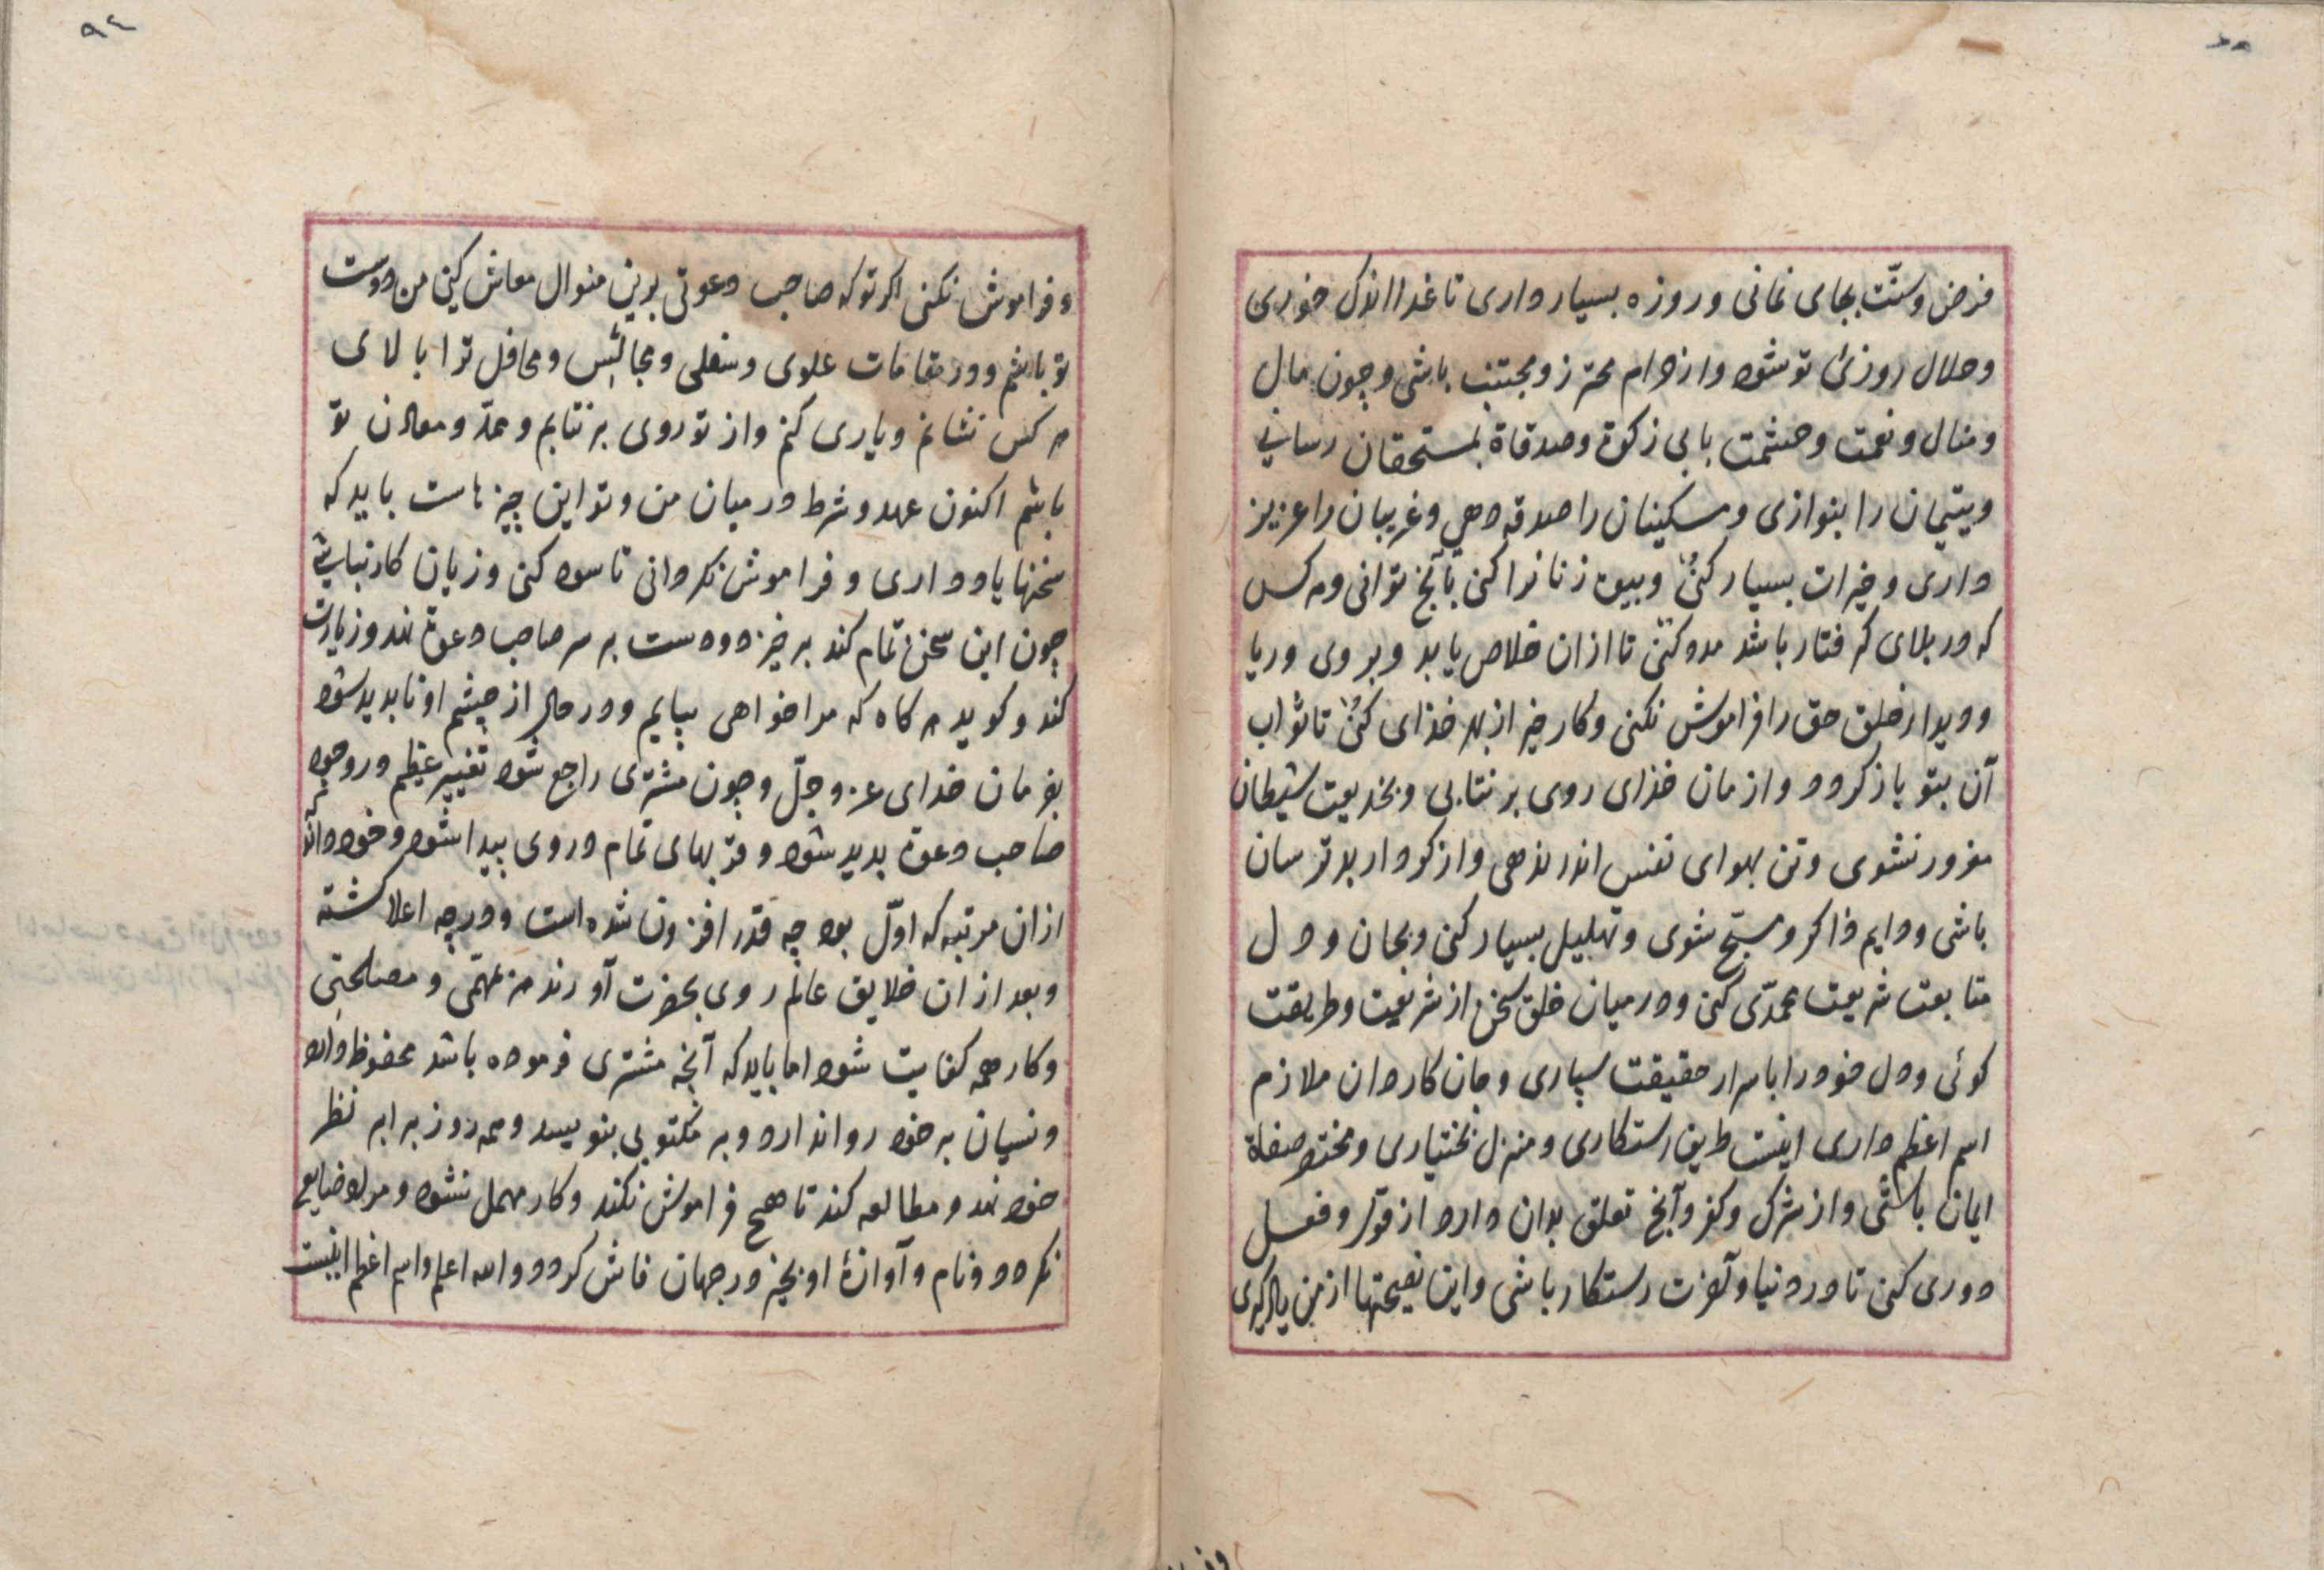 فرض و سنّت بجای نمانی و روزه بسیار داری تا غدا اندک خوری
و حلال روزئ تو شود و از حرام محترز و مجتنب باشی و چون مال
و منال و نعمت و حشمت یابی زکوة و صدقاة بمستحقان رسانی
و یتیمان را بنوازی و مسکینان را صدقه دهی و غریبان را عزیز
داری و خیرات بسیار کنی و بیوه زنانرا کنی بآنج توانی و هر کس
که در بلای گرفتار باشد مدد کنی تا ازان خلاص یابد و بروی و ریا
و دیدار خلق حق را فراموش نکنی و کار خیر از بهر خذای کنی تا ثواب
آن بتو باز کردد و از مان خذای روی بر نتابی و بخدیعت شیطان
مغرور نشوی و تن بهوای نفس اندر ندهی و از کردار بد ترسان
باشی و دایم ذاکر و مسبّح شوی و تهلیل بسیار کنی و بجان و دل
متابعت شریعت محمّدی کنی و در میان خلق سخن از شریعت و طریقت
کوئی و دل خود را باسرار حقیقت سپاری و جان کاردان ملازم
اسم اعظم داری اینست طریق رستکاری و منزل بختیاری و مختصر صفاة
ایمان باشی و از شرک و کفر و آنج تعلق بدان دارد از قول و فعل
دوری کنی تا در دنیا و آخرت رستکار باشی و این نصیحتها از من یاد کیری
٩٤
و فراموش نکنی اکر تو که صاحب دعوتی برین منوال معاش کنی من دوست
تو باشم و در مقامات علوی و سفلی و مجالس و محافل ترا بالای
هر کس نشانم و یاری کنم و از تو روی بر نتابم و ممدّ و معاون تو
باشم اکنون عهد و شرط در میان من و تو این چیزهاست باید که
سخنها یاد داری و فراموش نکردانی تا سود کنی و زیان کار نباشی
چون این سخن تمام کند بر خیزد و دست بر سر صاحب دعوة نهد و زیارت
کند و کوید هر کاه که مرا خواهی بیایم و در حال از چشم او نابدید شود
بفرمان خدای عز و جلّ و چون مشتری راجع شود تغییر عظیم در وجود
صاحب دعوة بدید شود و قربهای تمام در وی پیدا شود و خود داند که
ازان مرتبه که اوّل بود چه قدر افزون شده است و درجه اعلا کشته
و بعد ازان خلایق عالم روی بحضرت آورند هر مهمّی و مصلحتی
و کار همه کفایت شود اما باید که آنچه مشتری فرموده باشد محفوظ دارد
و نسیان بر خود روا ندارد و بر مکتوبی بنویسد و همه روز برابر نظر
خود نهد و مطالعه کند تا هیچ فراموش نکند و کار مهمل نشود و مراد ضایع
نکردد و نام و آوازۀ او بخیر در جهان فاش کردد و الله اعلم و اسم اعظم اینست